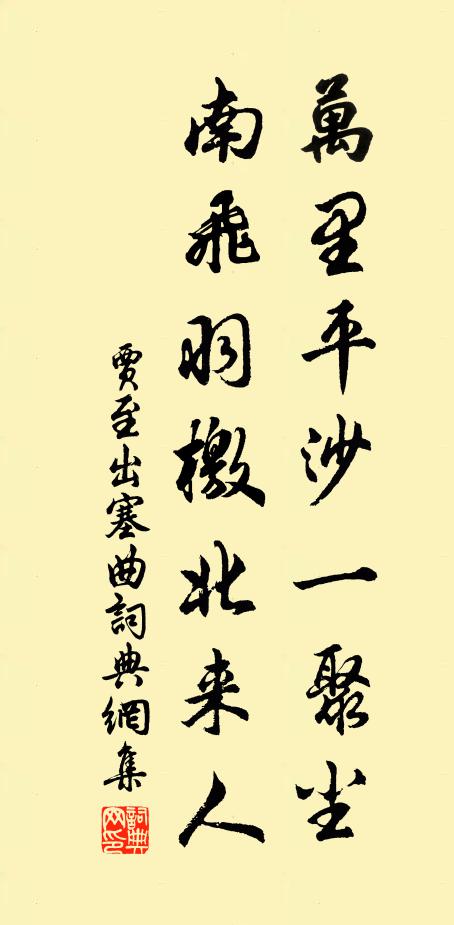 萬里平沙一聚尘
南飛羽檄北来人
賈至出塞曲詞典網集
詞典網印